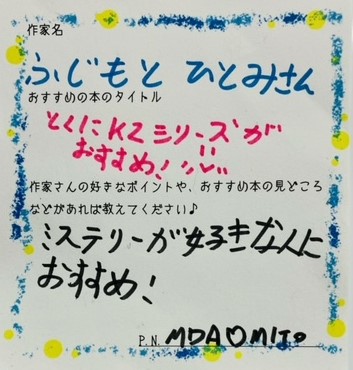 作家名
ふじもと ひとみさん
おすすめの本のタイトル
とくにKZシリーズが
おすすめ!!
作家さんの好きなポイントや、おすすめ本の見どころ
などがあれば教えてください♪
ミステリーが好きな人に
おすすめ!
P.N. MDA♡MIJo